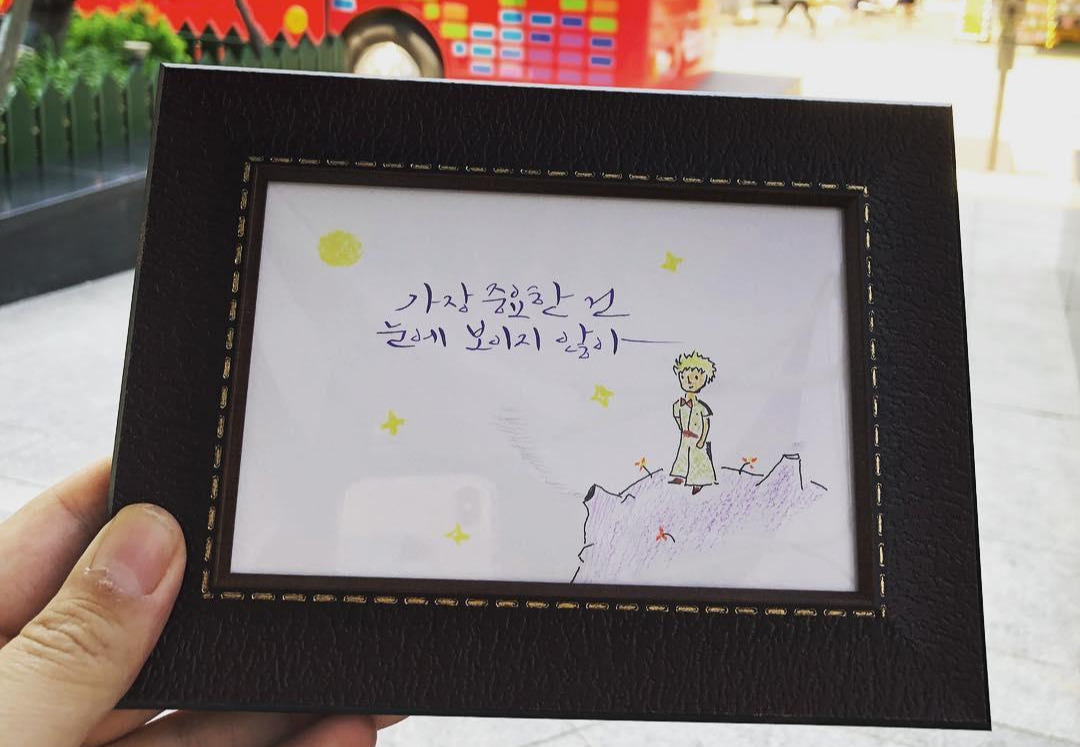 가장 중요한 건
눈에 보이지 않아